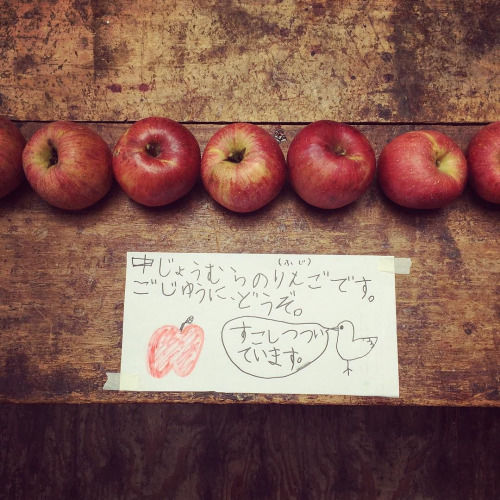 (ふじ)
中じょうむらのりんごです。
ごじゆうに、どうぞ。
すこしつつい
ています。